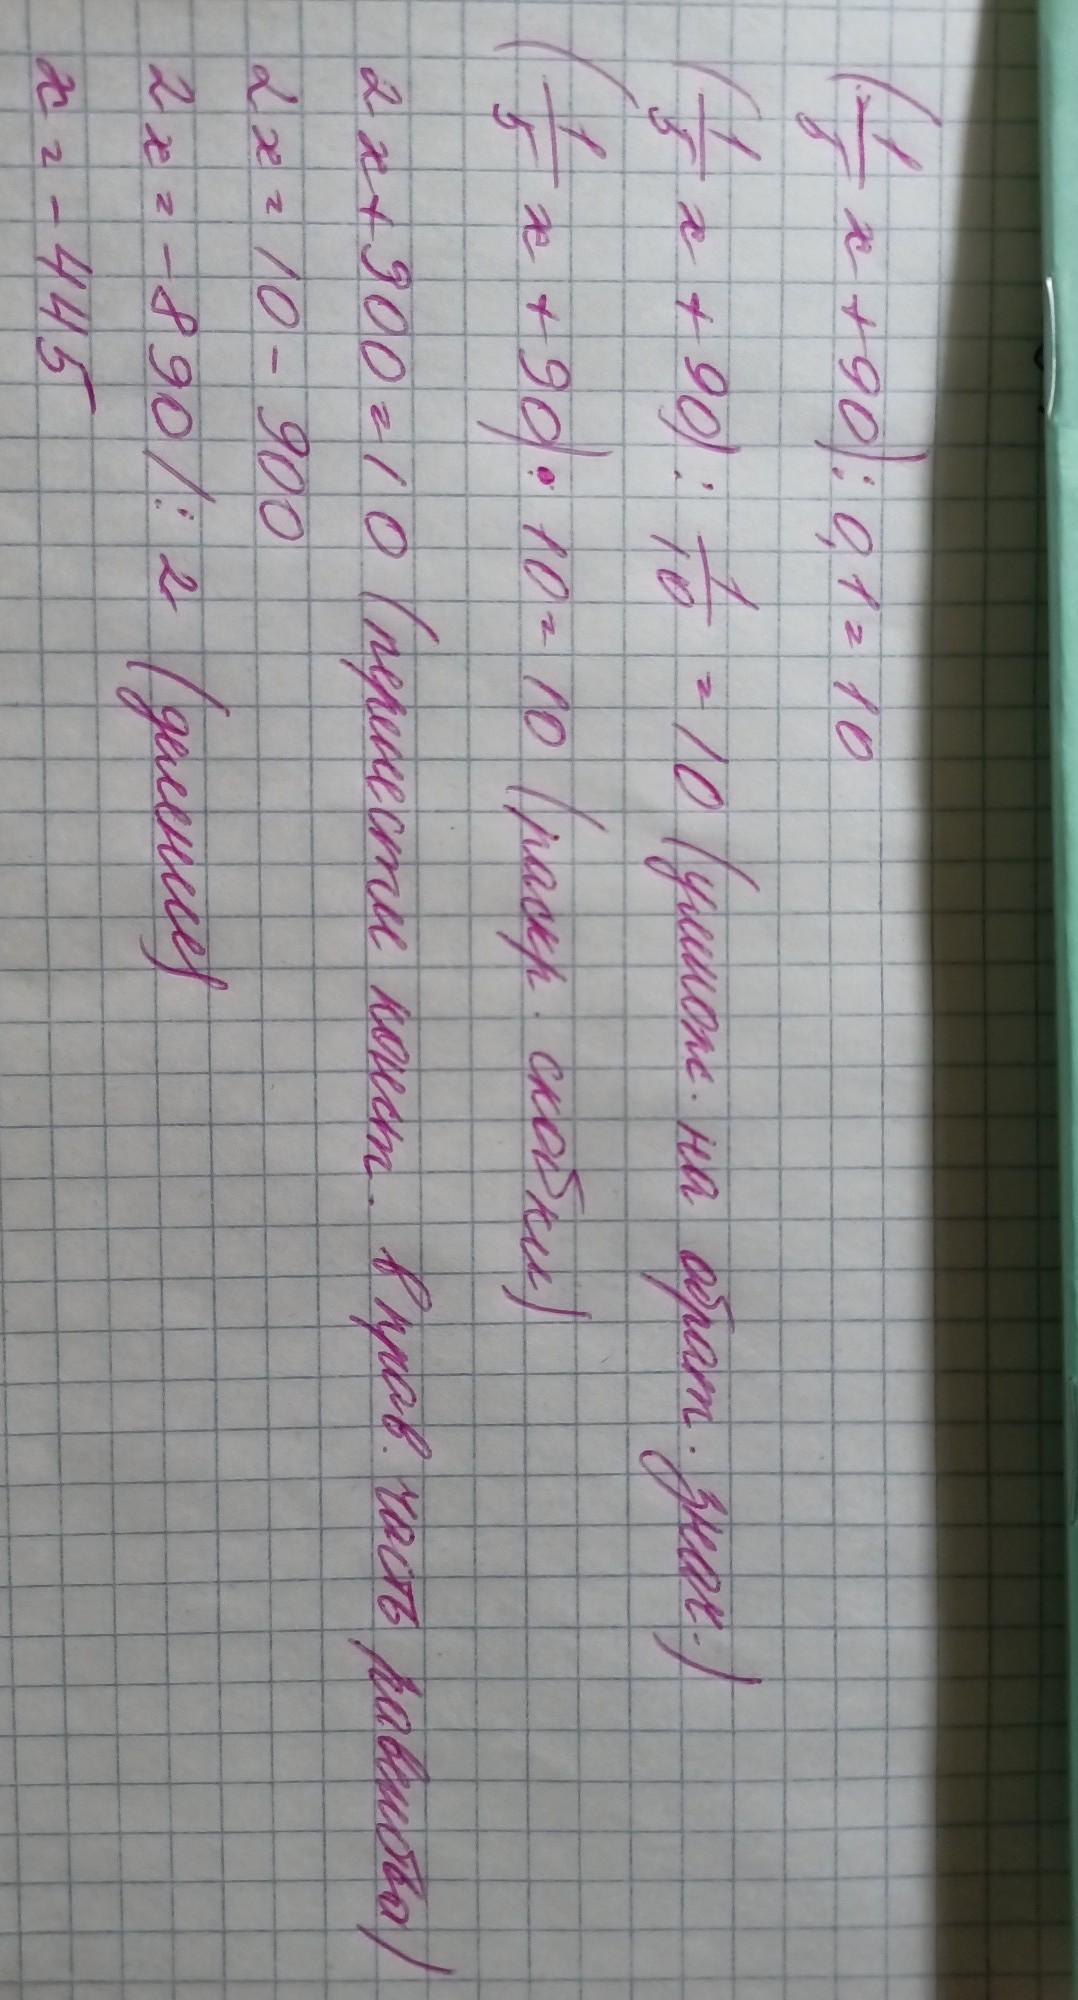 (1/5 x + 90) : 0,1 = 10
(1/5 x + 90) : 1/10 = 10 (умнож. на обрат. знач.)
(1/5 x + 90) · 10 = 10 (раскр. скобки)
2x + 900 = 10 (переместие конст. в прав. часть равенства)
2x = 10 - 900
2x = -890 /: 2 (деление)
x = -445